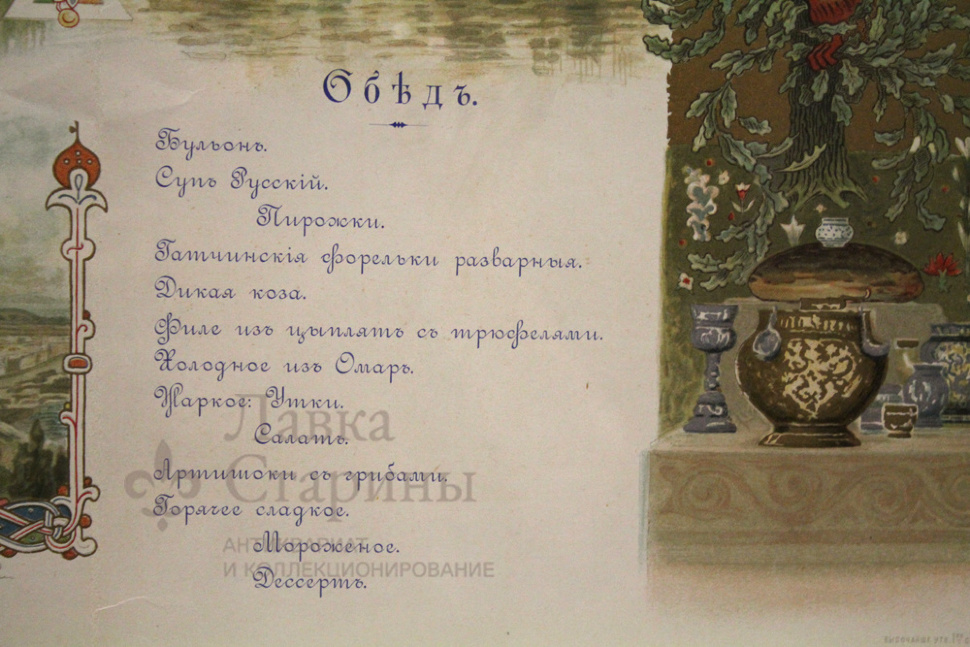 Обѣдъ.
Бульонъ.
Супъ Русскій.
Пирожки.
Гатчинскія форельки разварныя.
Дикая коза.
Филе изъ цыплятъ съ трюфелями.
Холодное изъ Омаръ.
Жаркое: Утки.
Лавка
Салатъ.
Старины
Артишоки съ грибами.
Горячее сладкое.
АНТИКВАРИАТ
Мороженое.
И КОЛЛЕКЦИОНИРОВАНИЕ
Дессертъ.